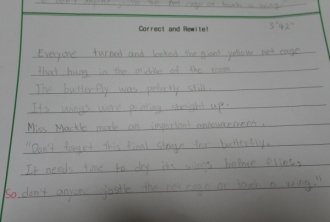 Correct and Rewrite!
3'42"
Everyone turned and looked the giant yellow net cage
that hung in the middle of the room
The butterfly was perfectly still
It's wings were pointing straight up.
Miss Mackle made an important announcement.
"Don't forget this final stage for butterfly.
It needs time to dry its wings before flies.
So don't anyone jostle the net cage or touch a wing."